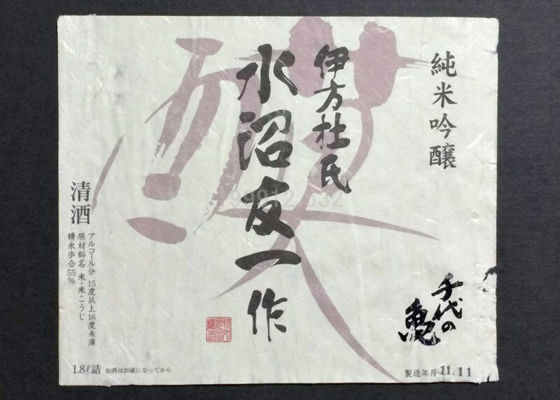 純米吟醸
伊方杜氏
水沼友一作
千代の亀
清酒
アルコール分 15度以上16度未満
原材料名 米・米こうじ
精米歩合55%
1.8ℓ詰 お酒は20歳になってから
製造年月 11.11